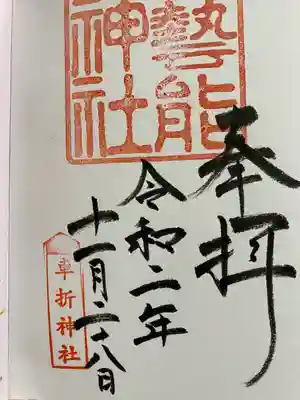 奉拝
藝能
神社
令和二年
十一月二十八日
車折神社